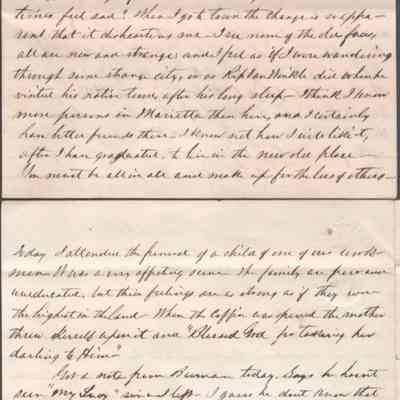 times feel sad? When I got down the change is so appa-
rent that it disheartens me - I see none of the dear faces,
all are new and strange, and I feel as if I were wandering
through some strange city, or as Rip Van Winkle did when he
visited his native town, after his long sleep - I think I know
more persons in Marietta than here, and I certainly
have better friends there. I know not how I will like it,
after I have graduated, to live in the new old place -
You must be all in all and make up for the loss of others -
Today I attended the funeral of a child of one of our work-
men. It was a very affecting scene. The family are poor and
uneducated, but their feelings are as strong as if they were
the highest in the land - When the coffin was opened the mother
threw herself upon it and "Blessed God for taking her
darling to Him"
Got a note from Burman today. Says he hasn't
seen "My Lucy" since I left - I guess he don't know that